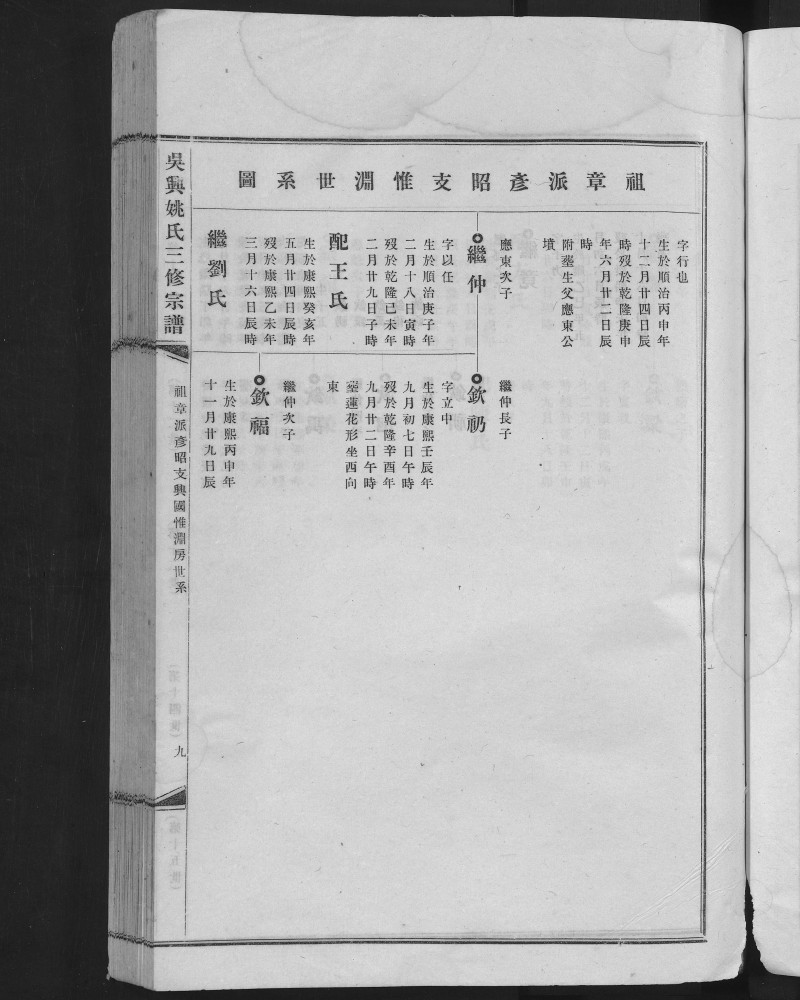 祖章派彥昭支惟淵世系圖
字行也
生於順治丙申年
十二月廿四日辰
時歿於乾隆庚申
年六月廿二日辰
時
附塟生父應東公
墳
應東次子
繼仲
字以任
生於順治庚子年
二月十八日寅時
歿於乾隆己未年
二月廿九日子時
配王氏
生於康熙癸亥年
五月廿四日辰時
歿於康熙乙未年
三月十六日辰時
繼劉氏
繼仲長子
欽礽
字立中
生於康熙壬辰年
九月初七日午時
歿於乾隆辛酉年
九月廿二日午時
塟蓮花形坐酉向
東
繼仲次子
欽福
生於康熙丙申年
十一月廿九日辰
吳興姚氏三修宗譜
祖章派彥昭支興國惟淵房世系
九